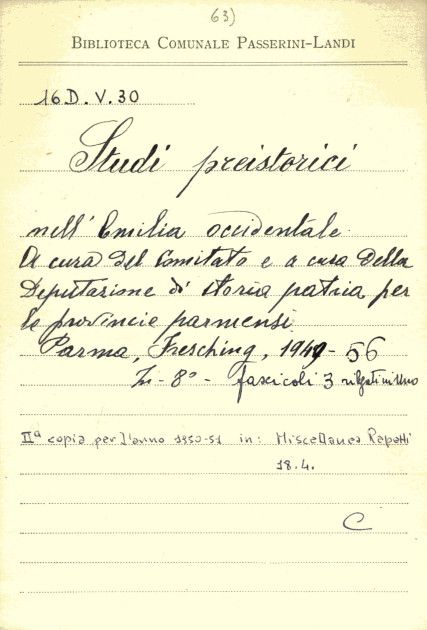 63)
BIBLIOTECA COMUNALE PASSERINI-LANDI
16 D. V. 30
Studi preistorici
nell'Emilia occidentale.
A cura del Comitato e a cura della
Deputazione di storia patria per
le provincie parmensi.
Parma, Fresching, 1949-56
In-8° - fascicoli 3 rilegati in uno
IIª copia per l'anno 1950-51 in: Miscellanea Rapetti
18.4.
C